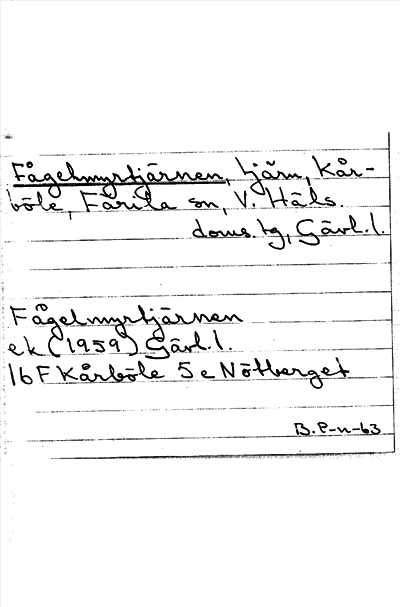 Fågelmyrtjärnen, tjärn, Kår-
böle, Färila sn, V. Häls.
doms. tg, Gävl. l.
Fågelmyrtjärnen
ek (1959) Gävl. l.
16F Kårböle 5e Nötberget
B. P-n-63